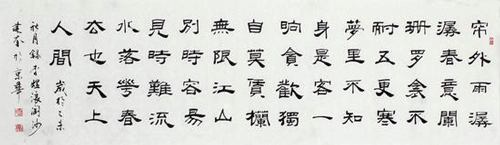 帘外雨潺
潺春意闌
珊罗衾不
耐五更寒
夢里不知
身是客一
晌貪歡獨
自莫凭欄
無限江山
別時容易
見時難流
水落花春
去也天上
人間
歲於乙未
月錄李煜浪淘沙
於京華